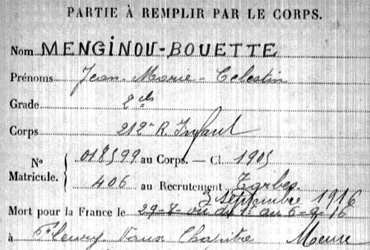 PARTIE À REMPLIR PAR LE CORPS.
Nom MENGINOU-BOUETTE
Prénoms Jean-Marie-Celestin
Grade 2e cls
Corps 212e R Infant
No 018599 au Corps. — Cl. 1905
Matricule. 406 au Recrutement Tarbes
Septembre 1916
Mort pour la France le 29-8- ou du 1 au 6-9-16
à Fleury Vaux Chapitre Meuse